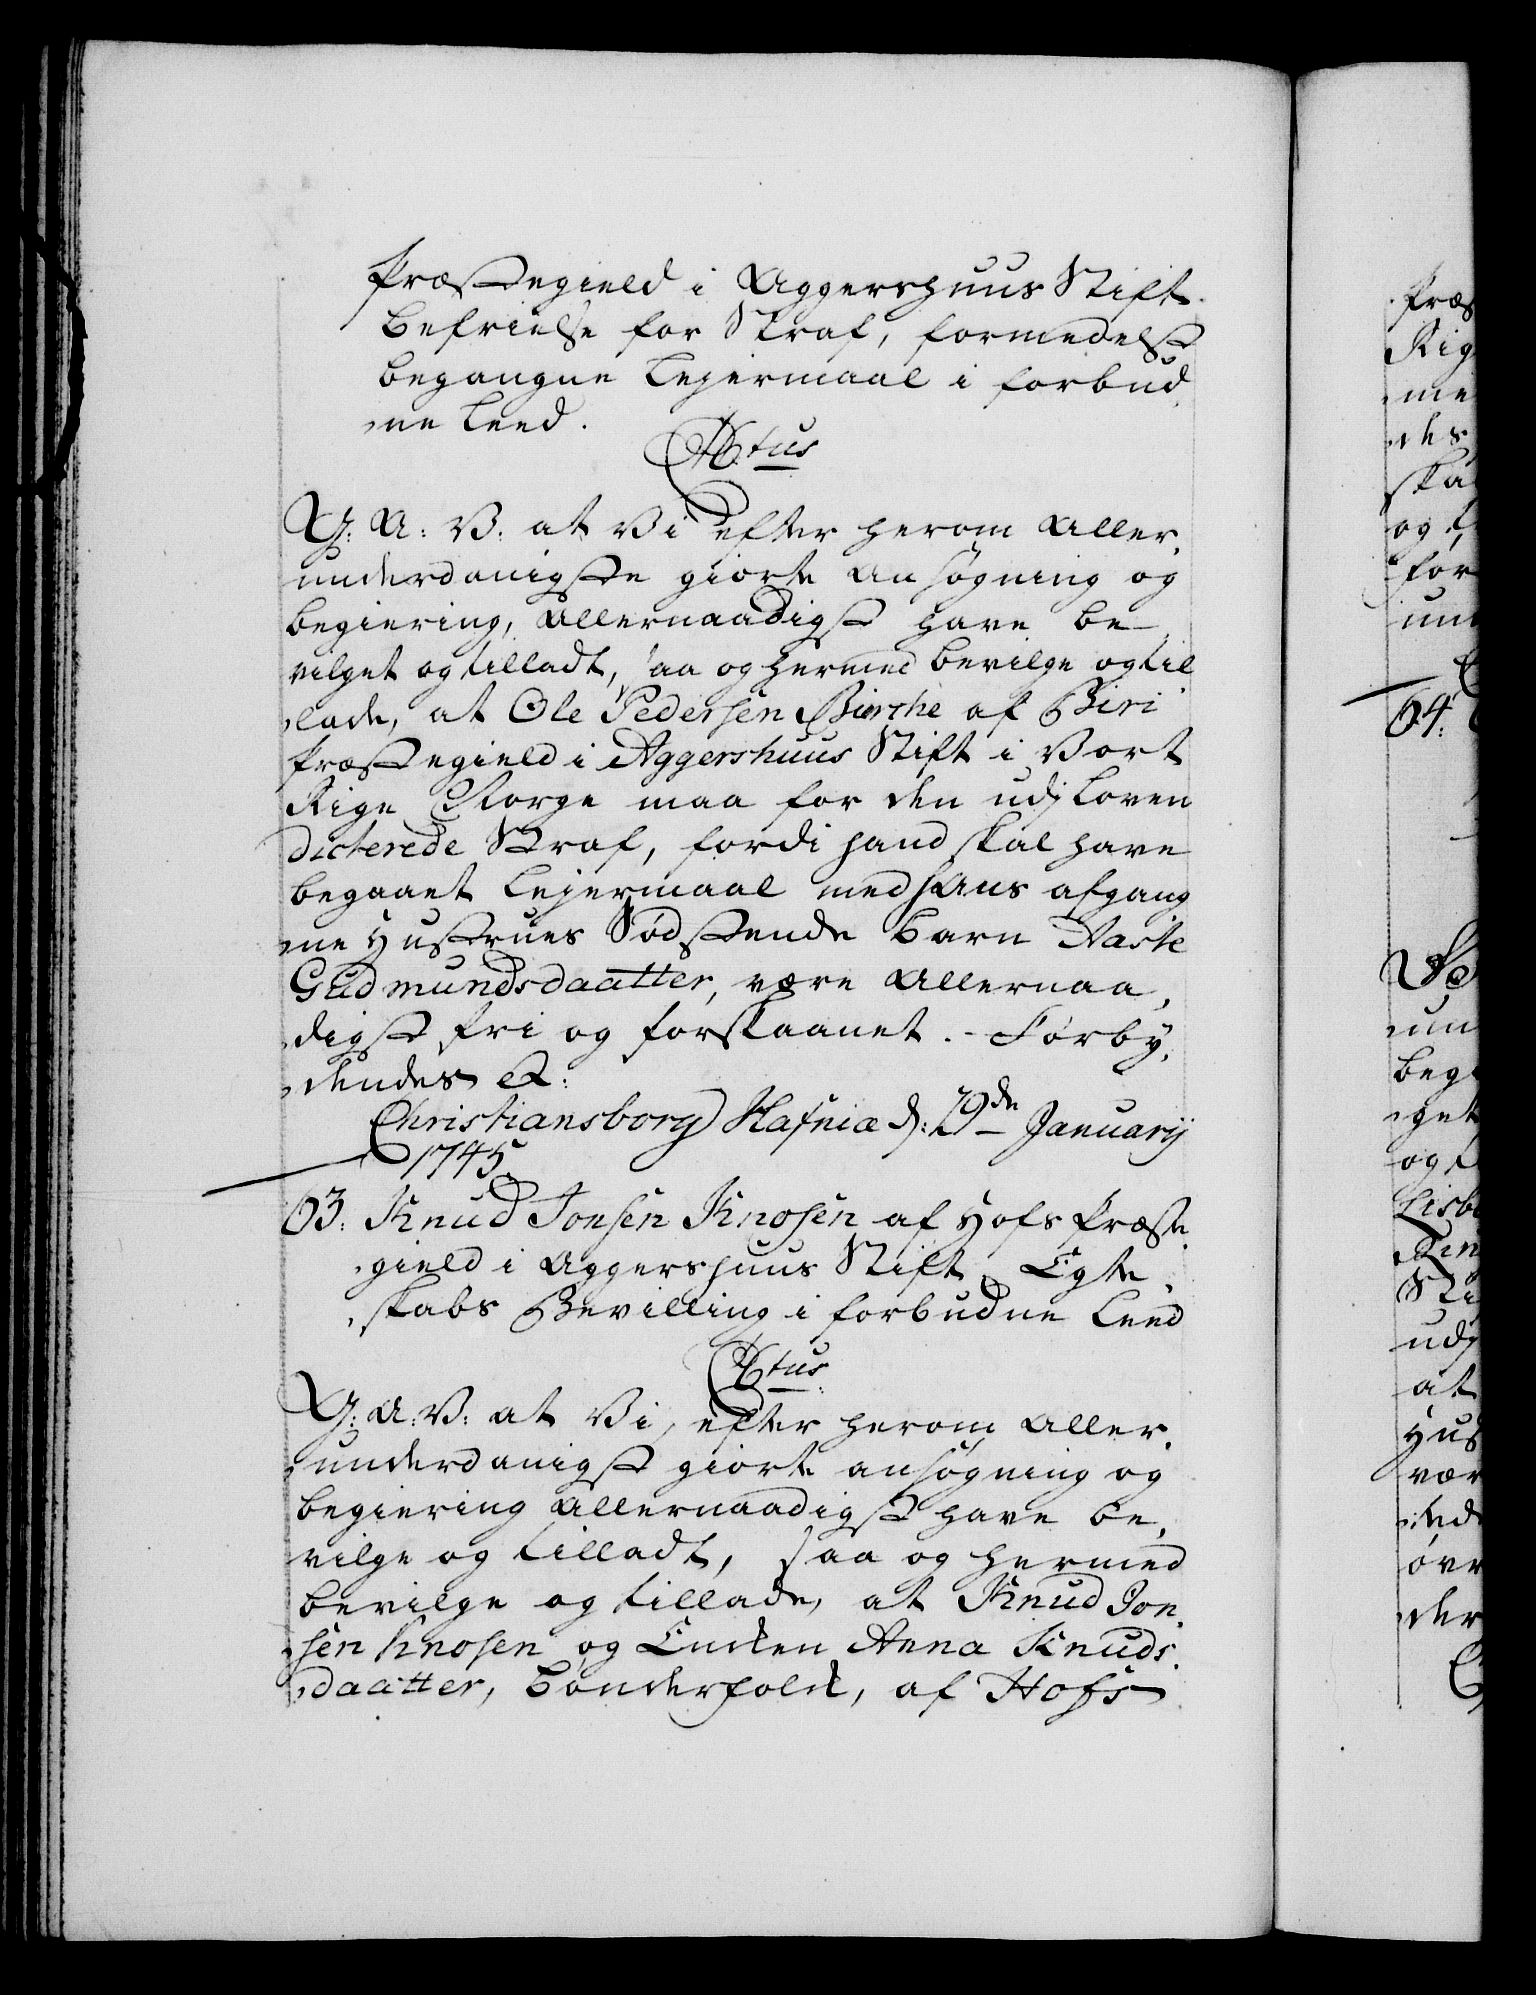 Præstegield i Aggershuus Stift
Befrielse for Straf, formedelst
begangne Lejermaal i forbud
ne Leed.
C6tus
G: A: V: at Vi efter herom Aller
underdanigste giorte Ansøgning og
begiering, Allernaadigst have be
vilget og tilladt, saa og hermed bevilge og til
lade, at Ole Pedersen Birche af Biri
Præstegield i Aggershuus Stift i Vort
Rige Norge maa for den udj Loven
dicterede Straf, fordi hand skal have
begaaet Lejermaal med hans afgang
ne Hustrues Sødskende barn Aaste
Gudmundsdaatter, være Allernaa
digst fri og forskaanet. - Forby
dendes &:
Christiansborg Hafniæ d: 29de Januarij
1745.
63: Knud Jonsen Knosen af Hofs Præste
gield i Aggershuus Stift Egte
skabs Bevilling i forbudne Leed
C6tus
G: A: V: at Vi, efter herom Aller
underdanigst giorte ansøgning og
begiering Allernaadigst have be
vilge og tilladt, saa og hermed
bevilge og tillade, at Knud Jon
sen Knosen og Encken Anna Knuds
daatter, bønderfolck, af Hofs
Præs
Rig
me
des
ska
og
for
un
64:
un
beg
get
og
Lisb
Rin
Sti
udj
at
Hus
vær
øvr
der